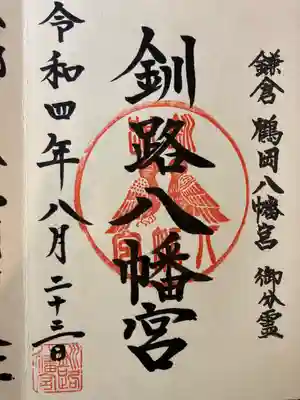 鎌倉 鶴岡八幡宮 御分霊
釧路八幡宮
令和四年八月二十三日